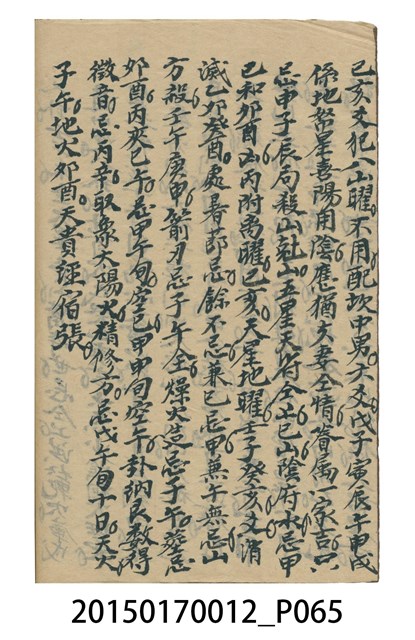 己亥爻犯八山曜不用配坎中男六爻戊子寅辰午申戌
係地弩星喜陽用陰應猶夫妻全情眷屬一家吉只
忌申子辰局殺山剋山五星天符全亡巳山陰府水忌甲
己和卯酉山丙附离曜己亥天星地曜壬子癸亥文消
滅乙卯癸酉處暑節忌餘不忌兼巳忌甲兼午無忌山
方殺壬午庚申箭刃忌子午全燥火造忌子午葬忌
卯酉丙癸巳午忌甲午旬空己甲申旬空午卦納艮数得
徵音忌丙辛取象太陽火精修方忌戊午旬十日天火
子午地火卯酉天貴経宿張
20150170012_P065